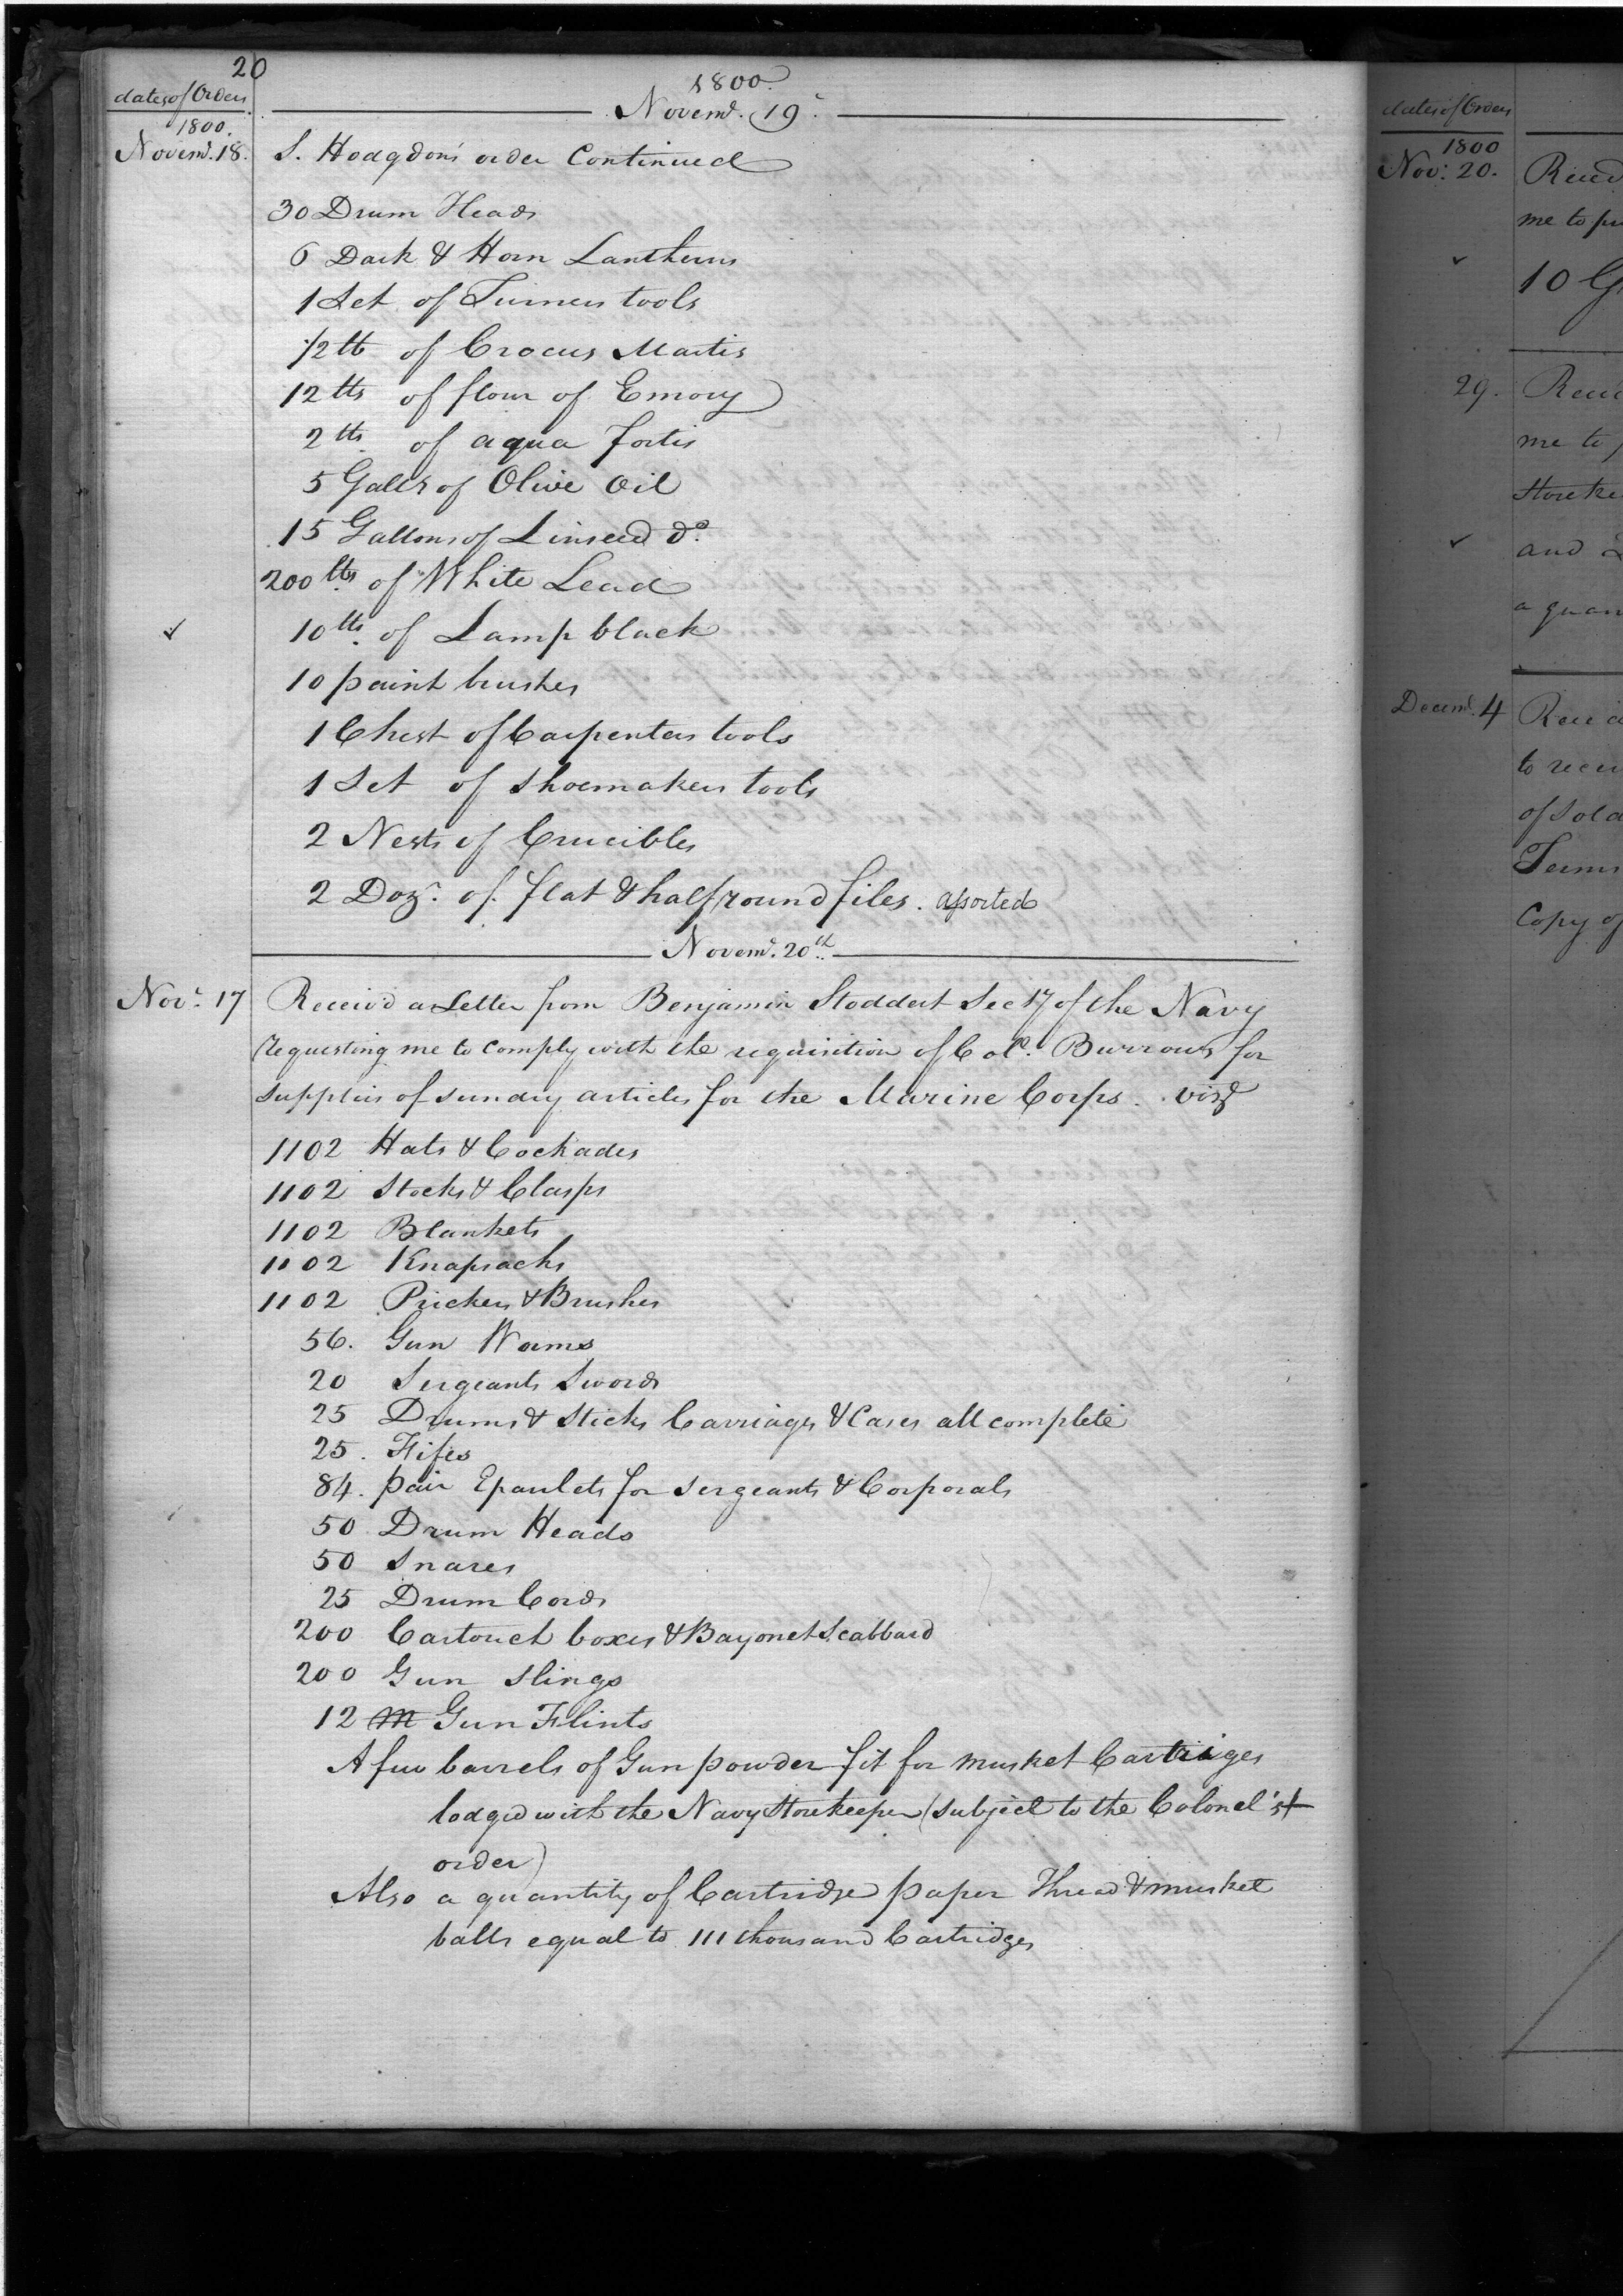 20
dates of Orders
1800.
Novemr. 19
1800.
Novemr. 18.
S. Hodgdon's order Continued
30 Drum Heads
6 Dark & Horn Lantherns
1 Set of Turners tools
1/2 lb of Crocus Martis
12 lbs of flour of Emory
2 lbs of aqua fortis
5 Galls of Olive Oil
15 Gallons of Linseed do.
200 lbs. of White Lead
✓ 10 lbs. of Lamp black
10 paint brushes
1 Chest of Carpenters tools
1 Set of Shoemakers tools
2 Nests of Crucibles
2 Dozn. of flat & half round files. assorted
Novemr. 20th.
Novr. 17
Receiv'd a Letter from Benjamin Stoddert Secty of the Navy
requesting me to comply with the requisition of Colo. Burrows for
supplies of sundry articles for the Marine Corps. vizt
1102 Hats & Cockades
1102 Stocks & Clasps
1102 Blankets
1102 Knapsacks
1102 Prickers & Brushes
56. Gun Worms
20 Sergeants Swords
25 Drums & Sticks Carriages & Cases all complete
25. Fifes
84. pair Epaulets for Sergeants & Corporals
50 Drum Heads
50 Snares
25 Drum Cords
200 Cartouch boxes & Bayonet Scabbard
200 Gun Slings
12 M Gun Flints
A few barrels of Gun powder fit for musket Cartriges
lodged with the Navy Storekeeper (subject to the Colonel's
order)
Also a quantity of Cartridge paper Thread & musket
balls equal to 111 thousand Cartridges
dates of Orders
1800
Nov: 20.
me to
✓ 10
29.
me to
✓ and
a
Decemr. 4
to
of
Copy of